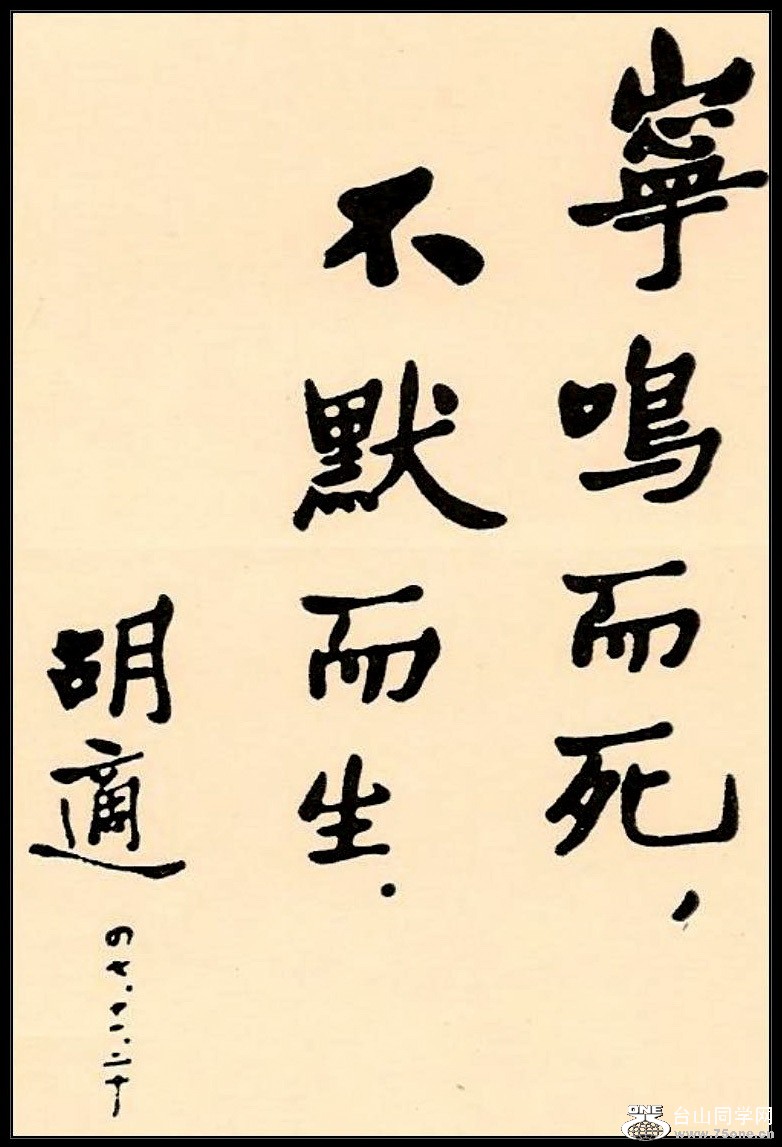 寧鳴而死，
不默而生．
胡適
四七．十二．二十
ONE 台山同学网
www.75one.cn